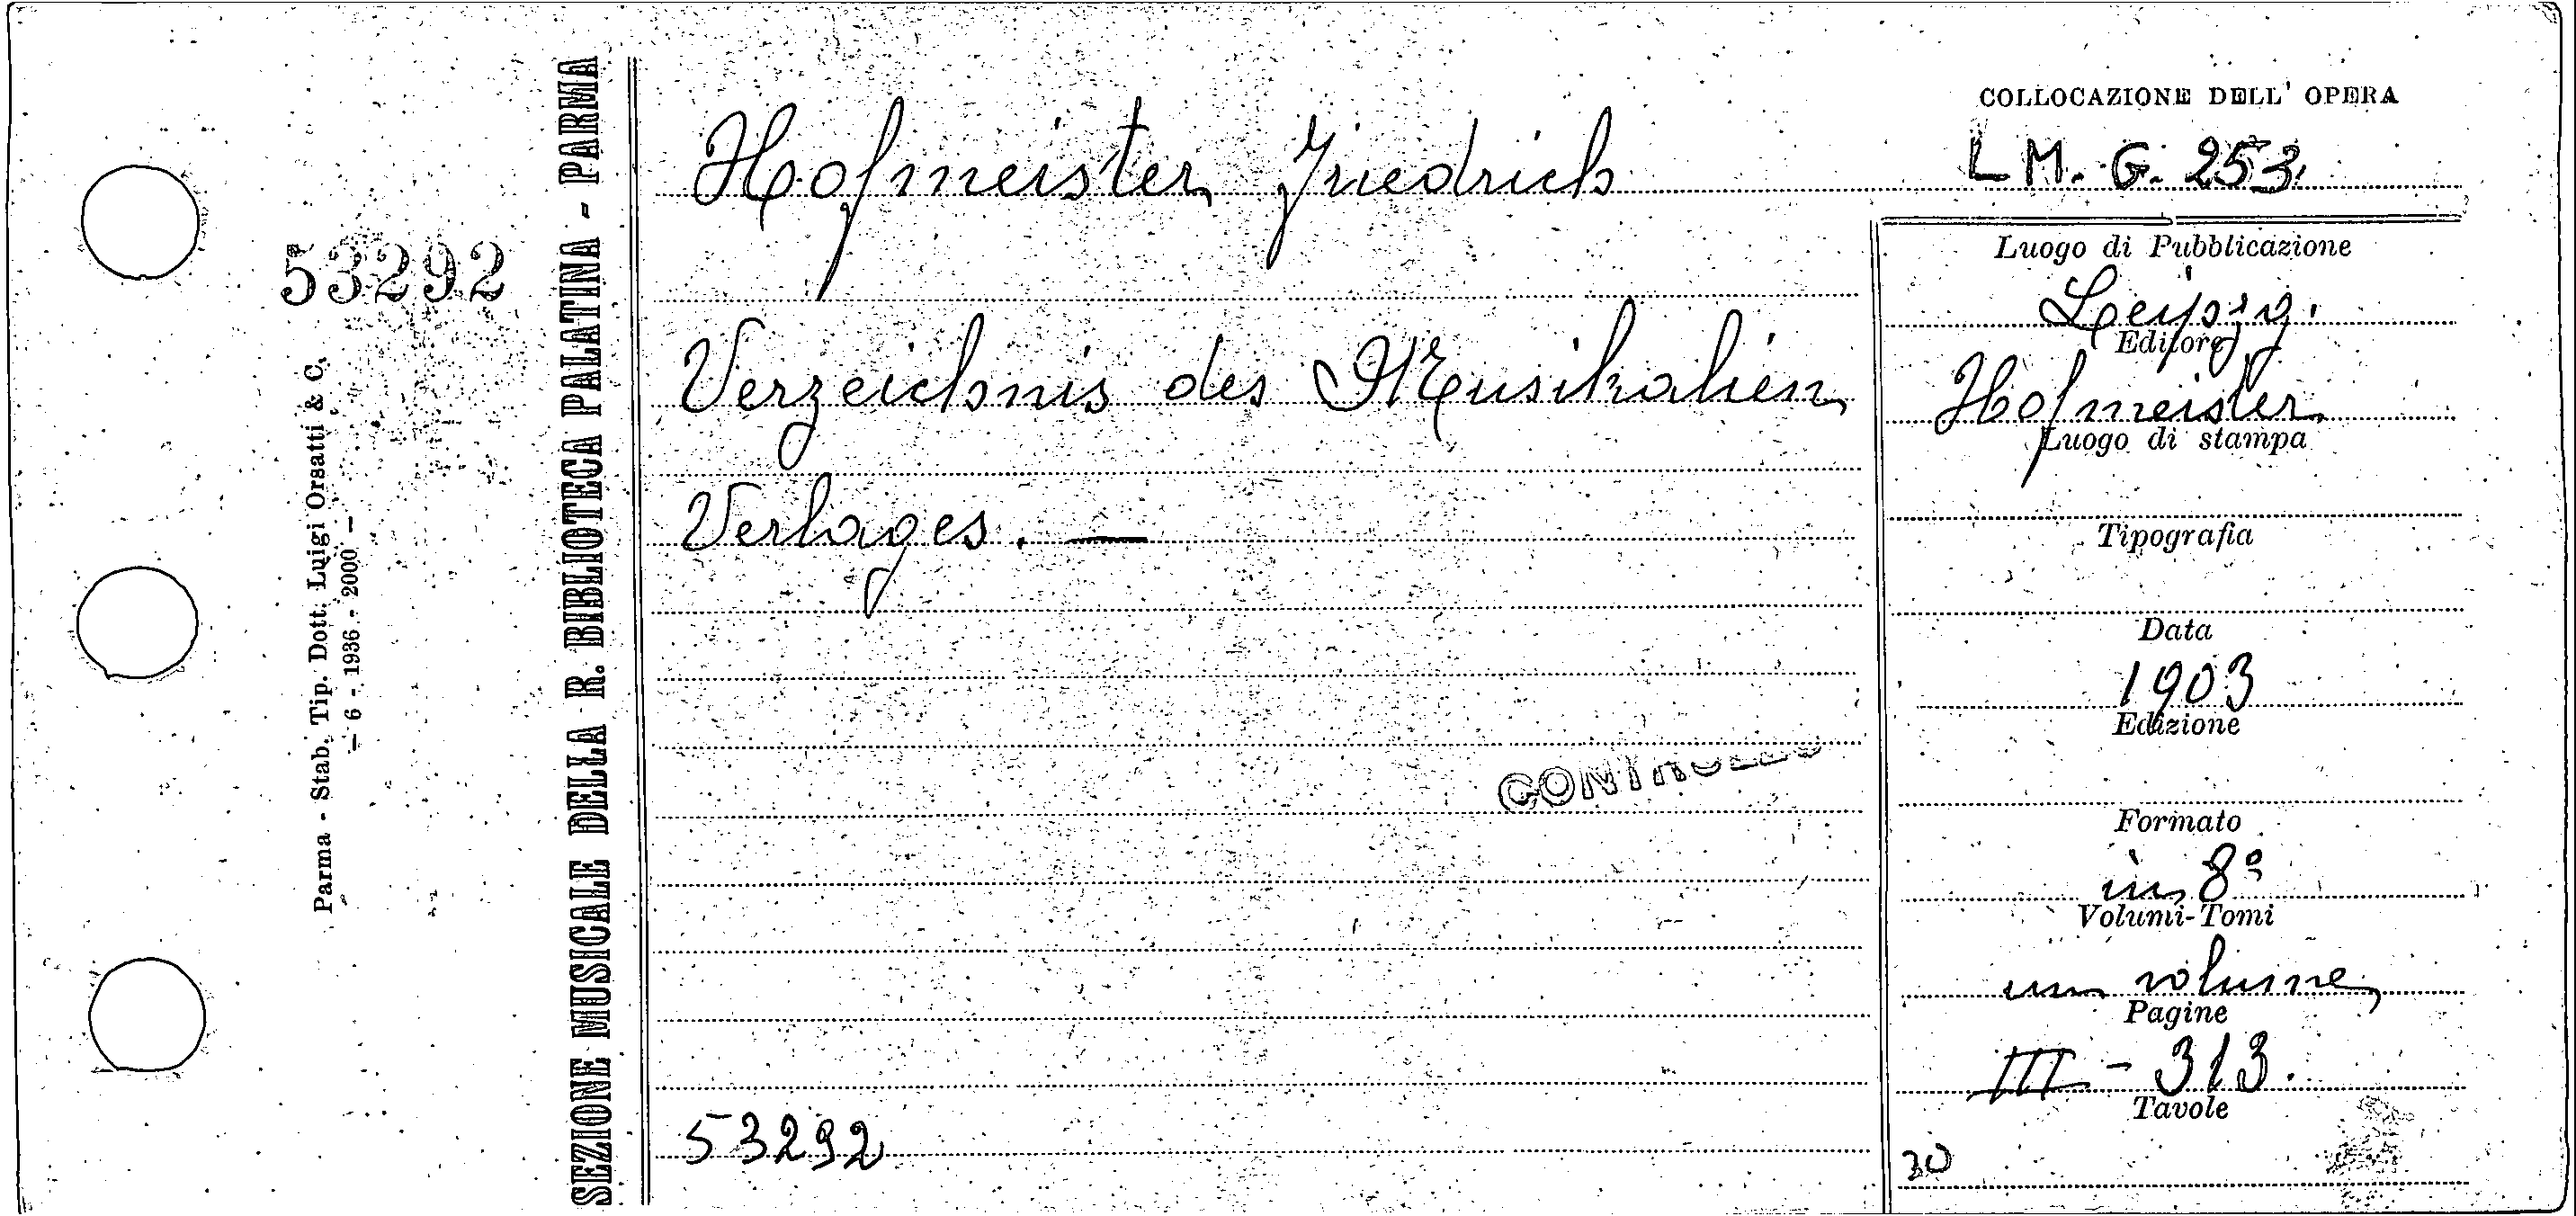 COLLOCAZIONE DELL' OPERA
Hofmeister Friedrich
LM. G. 253.
53292
Parma - Stab. Tip. Dott. Luigi Orsatti & C.
- 6 - 1936 - 2000 -
SEZIONE MUSICALE DELLA R. BIBLIOTECA PALATINA - PARMA
Verzeichnis des Musikalien
Verlages. —
CONTROLLO
53292
Luogo di Pubblicazione
Leipzig.
Editore
Hofmeister
Luogo di stampa
Tipografia
Data
1903
Edizione
Formato
in 8º
Volumi-Tomi
un volume
Pagine
III - 313.
Tavole
30